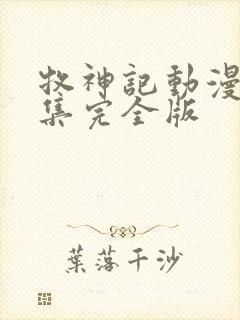 牧神記動漫
集完全版
葉落千沙